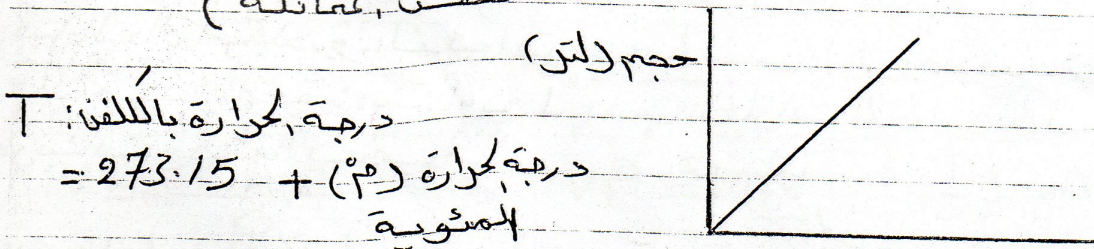 حجم (لتر)
درجة الحرارة بالكلفن: T
= 273.15 + درجة الحرارة (مْ)
المئوية